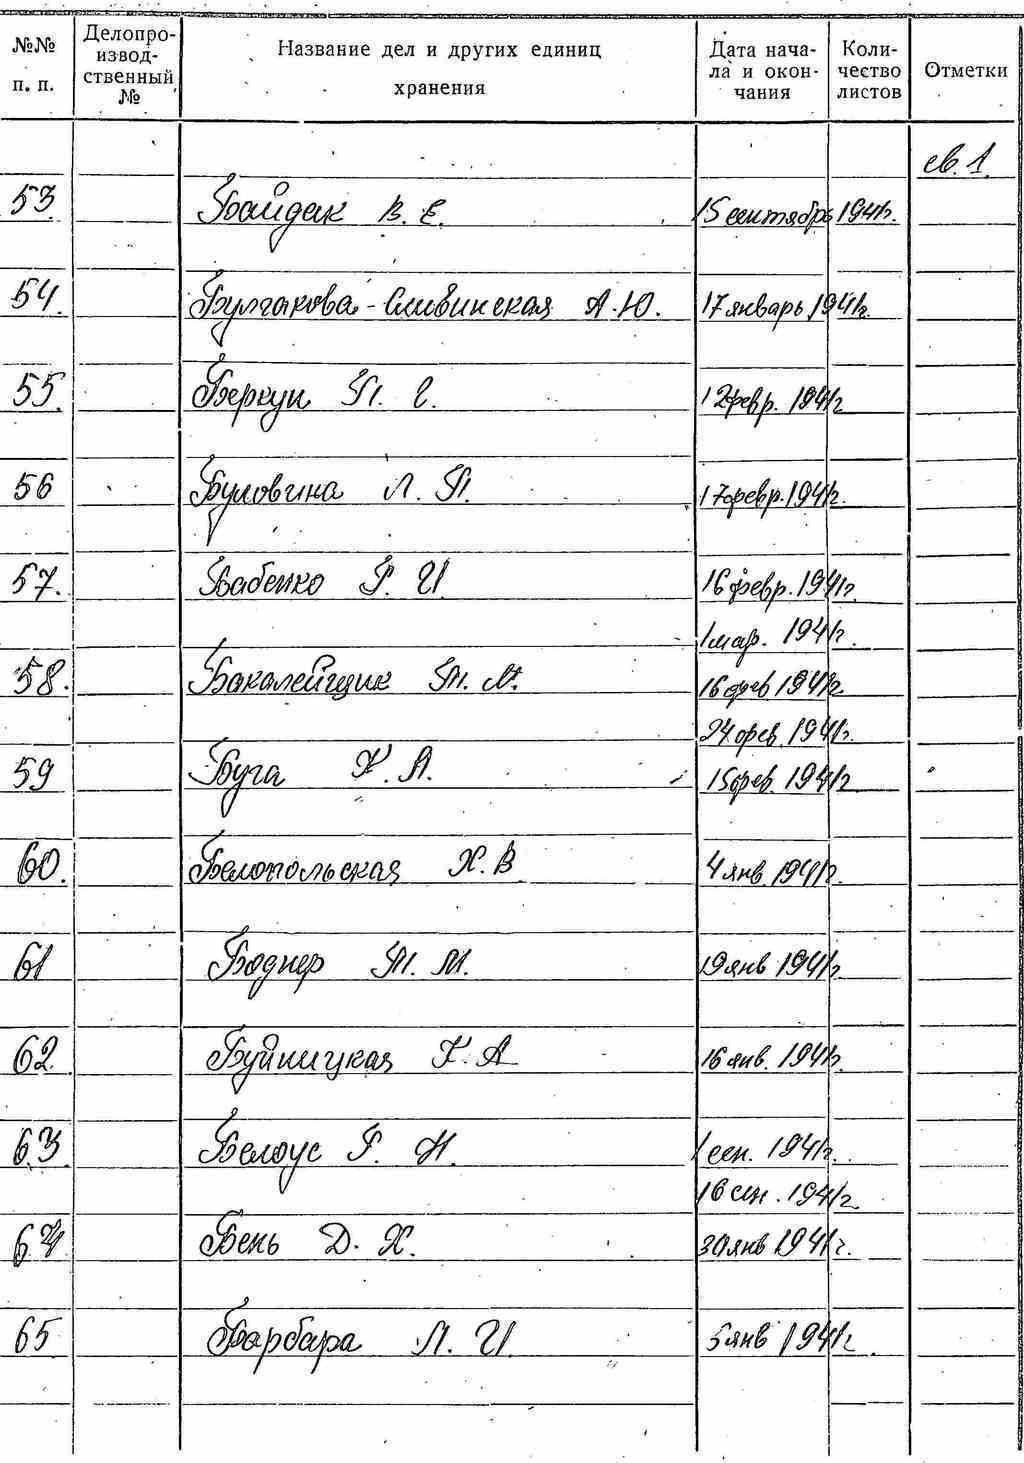 №№ п. п. Делопро-извод-ственный № Название дел и других единиц хранения Дата нача-ла и окон-чания Коли-чество листов Отметки
св. 1.
53 Байдак В. Е. 15 сентябрь 1941г.
54. Булгакова-Сливинская А.Ю. 17 январь 1941г.
55. Беркун П. Г. 12 февр. 1941г
56 Буловина Л. П. 17 февр. 1941г.
57. Бабенко Г. И 16 февр. 1941г.
1 мар. 1941г.
58. Бакалейщик М. 16 фев 1941г
24 фев. 1941г.
59 Буга К. А. 15 фев. 1941г
60. Белопольская Х. В 4 янв. 1941г.
61 Боднер М. М. 19 янв 1941г.
62. Буйницкая К. А 16 янв. 1941г.
63. Белоус Г. Н. 1 сен. 1941г.
16 сен. 1941г.
64 Бень Д. Х. 30 янв 1941г.
65 Барбара Л. И. 5 янв 1941г.